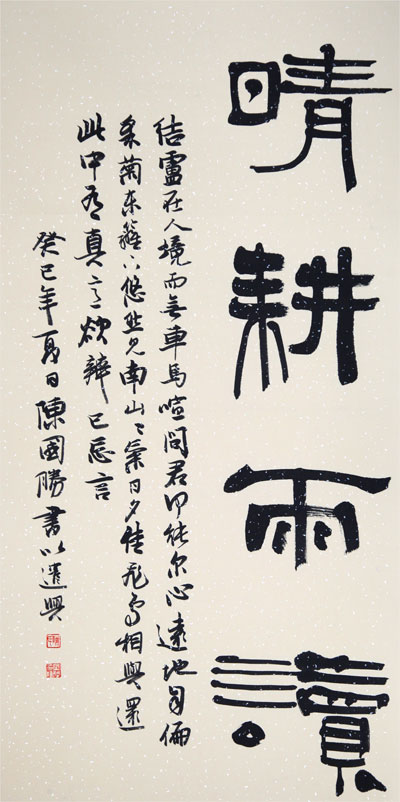 晴耕雨讀
结廬在人境而無車馬喧問君何能尔心遠地自偏
采菊东籬下悠然见南山〻氣日夕佳飛鳥相與還
此中有真意欲辨已忘言
癸巳年夏日陳國勝書以遣興